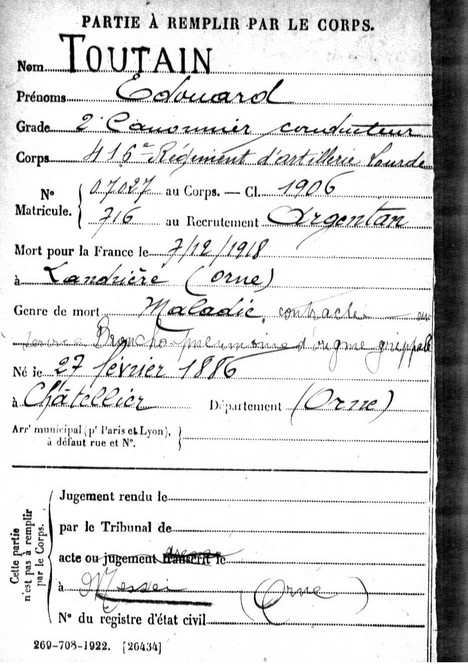 PARTIE À REMPLIR PAR LE CORPS.
Nom TOUTAIN
Prénoms Edouard
Grade 2e Canonnier conducteur
Corps 416e Régiment d'artillerie Lourde
N° Matricule. { 07027 au Corps. — Cl. 1906
716 au Recrutement Argentan
Mort pour la France le 7/12/1918
à Landrière (Orne)
Genre de mort Maladie, contractée au
service Broncho pneumonie d'origine grippale
Né le 27 février 1886
à Châtellier Département (Orne)
Arrt municipal (pr Paris et Lyon), à défaut rue et N°. }
Cette partie n'est pas à remplir par le Corps.
Jugement rendu le
par le Tribunal de
acte ou jugement transcrit le
à Messei (Orne)
N° du registre d'état civil
269-708-1922. [26434]